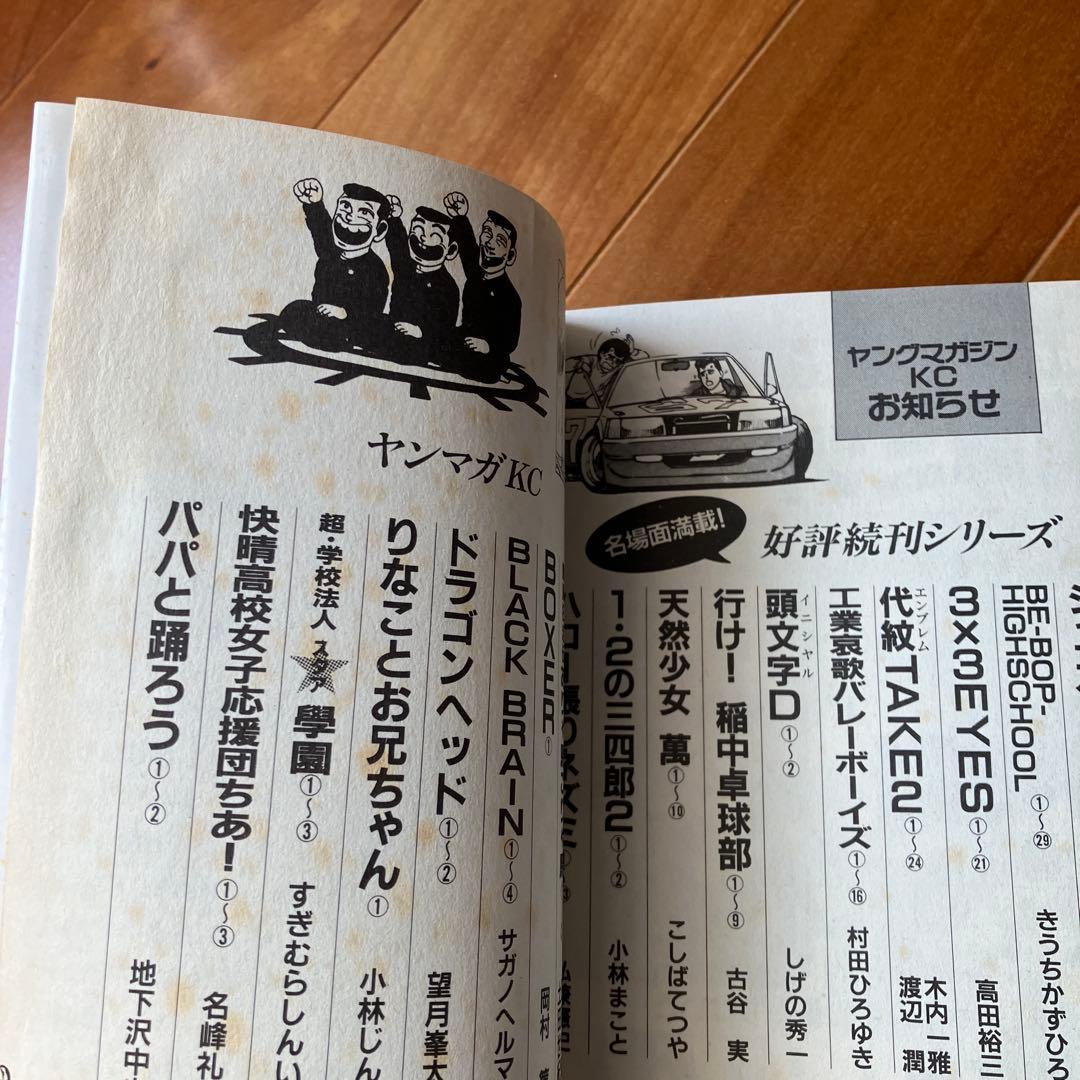 ヤングマガジン
KC
お知らせ
名場面満載!
好評続刊シリーズ
BE-BOP-
HIGHSCHOOL ①〜㉙ きうちかずひろ
3×3EYES ①〜㉑ 高田裕三
代紋TAKE2 ①〜㉔ 木内一雅
エンブレム
渡辺 潤
工業哀歌バレーボーイズ ①〜⑯ 村田ひろゆき
頭文字D ①〜② しげの秀一
イニシャル
行け! 稲中卓球部 ①〜⑨ 古谷 実
天然少女 萬 ①〜⑩ こしばてつや
1・2の三四郎2 ①〜② 小林まこと
ヤンマガKC
BOXER ① 岡村
BLACK BRAIN ①〜④ サガノヘルマ
ドラゴンヘッド ①〜② 望月峯太
りなことお兄ちゃん ① 小林じん
超・学校法人 スタア 學園 ①〜③ すぎむらしんい
快晴高校女子応援団ちあ! ①〜③ 名峰礼
パパと踊ろう ①〜② 地下沢中